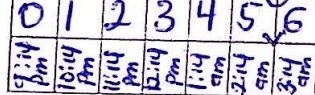 0 1 2 3 4 5 6
9:14 pm 10:14 pm 11:14 pm 12:14 pm 1:14 am 2:14 am 3:14 am